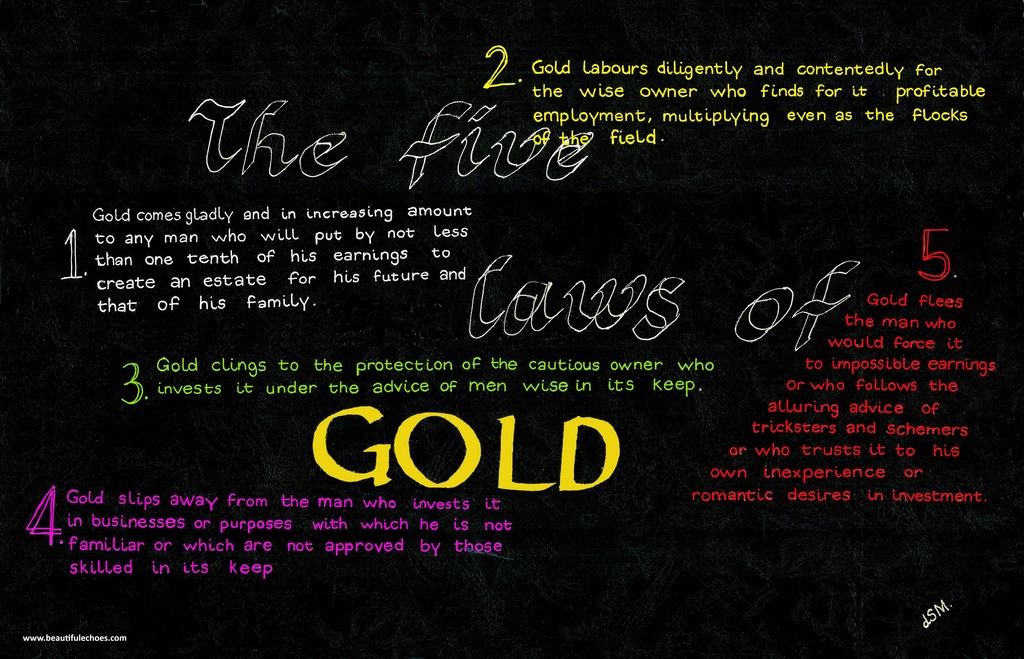 The five
laws of
GOLD
1.
Gold comes gladly and in increasing amount
to any man who will put by not less
than one tenth of his earnings to
create an estate for his future and
that of his family.
2.
Gold labours diligently and contentedly for
the wise owner who finds for it profitable
employment, multiplying even as the flocks
of the field.
3.
Gold clings to the protection of the cautious owner who
invests it under the advice of men wise in its keep.
4.
Gold slips away from the man who invests it
in businesses or purposes with which he is not
familiar or which are not approved by those
skilled in its keep
5.
Gold flees
the man who
would force it
to impossible earnings
or who follows the
alluring advice of
tricksters and schemers
or who trusts it to his
own inexperience or
romantic desires in investment.
dSM.
www.beautifulechoes.com